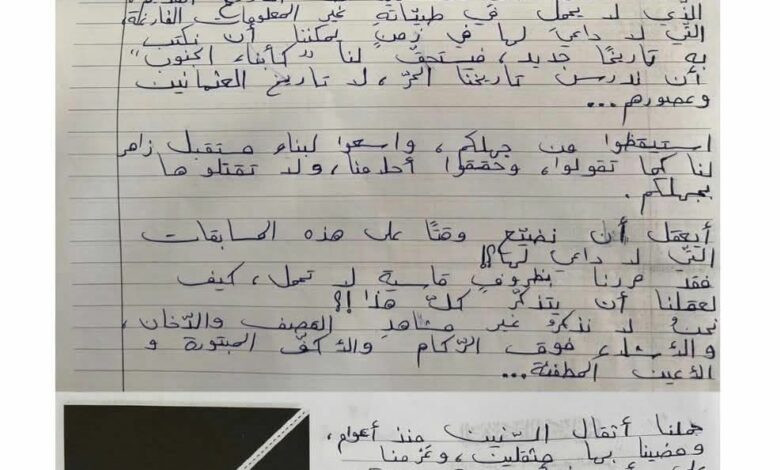 الذي لا يحمل في طياته غير المعلومات الفارغة،
التي لا داعي لها في زمنٍ يمكننا أن نكتب
به تاريخًا جديد، فيستحق لنا "كأبناء الجنوب"
أن ندرس تاريخنا الحرّ، لا تاريخ العثمانيين
وعصورهم...
استيقظوا من جهلكم، واسعوا لبناء مستقبل زاهر
لنا كما تقولوا، وحققوا أحلامنا، ولا تقتلوها
بجهلكم.
أيعقل أن نضيّع وقتًا على هذه المسابقات
التي لا داعي لها؟!
فقد مررنا بظروفٍ قاسية لا تحمل، كيف
لعقلنا أن يتذكّر كلّ هذا؟!
نحن لا نذكر غير مشاهدِ القصف والدّخان،
والأشلاء فوق الرّكام والأكفّ المبتورة و
الأعين المطفئة...
حملنا أثقال السّنين منذ أعوام،
ومضينا بها مثقلين، وعزمنا